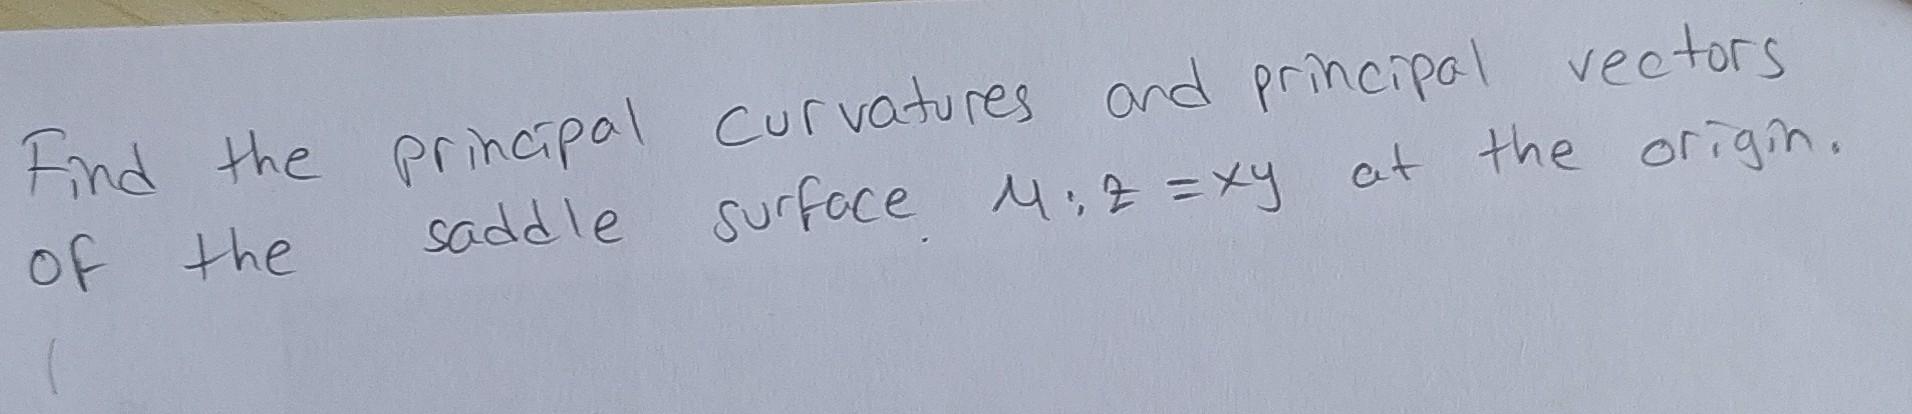 Find the principal curvatures and principal vectors
of the saddle surface M: z = xy at the origin.